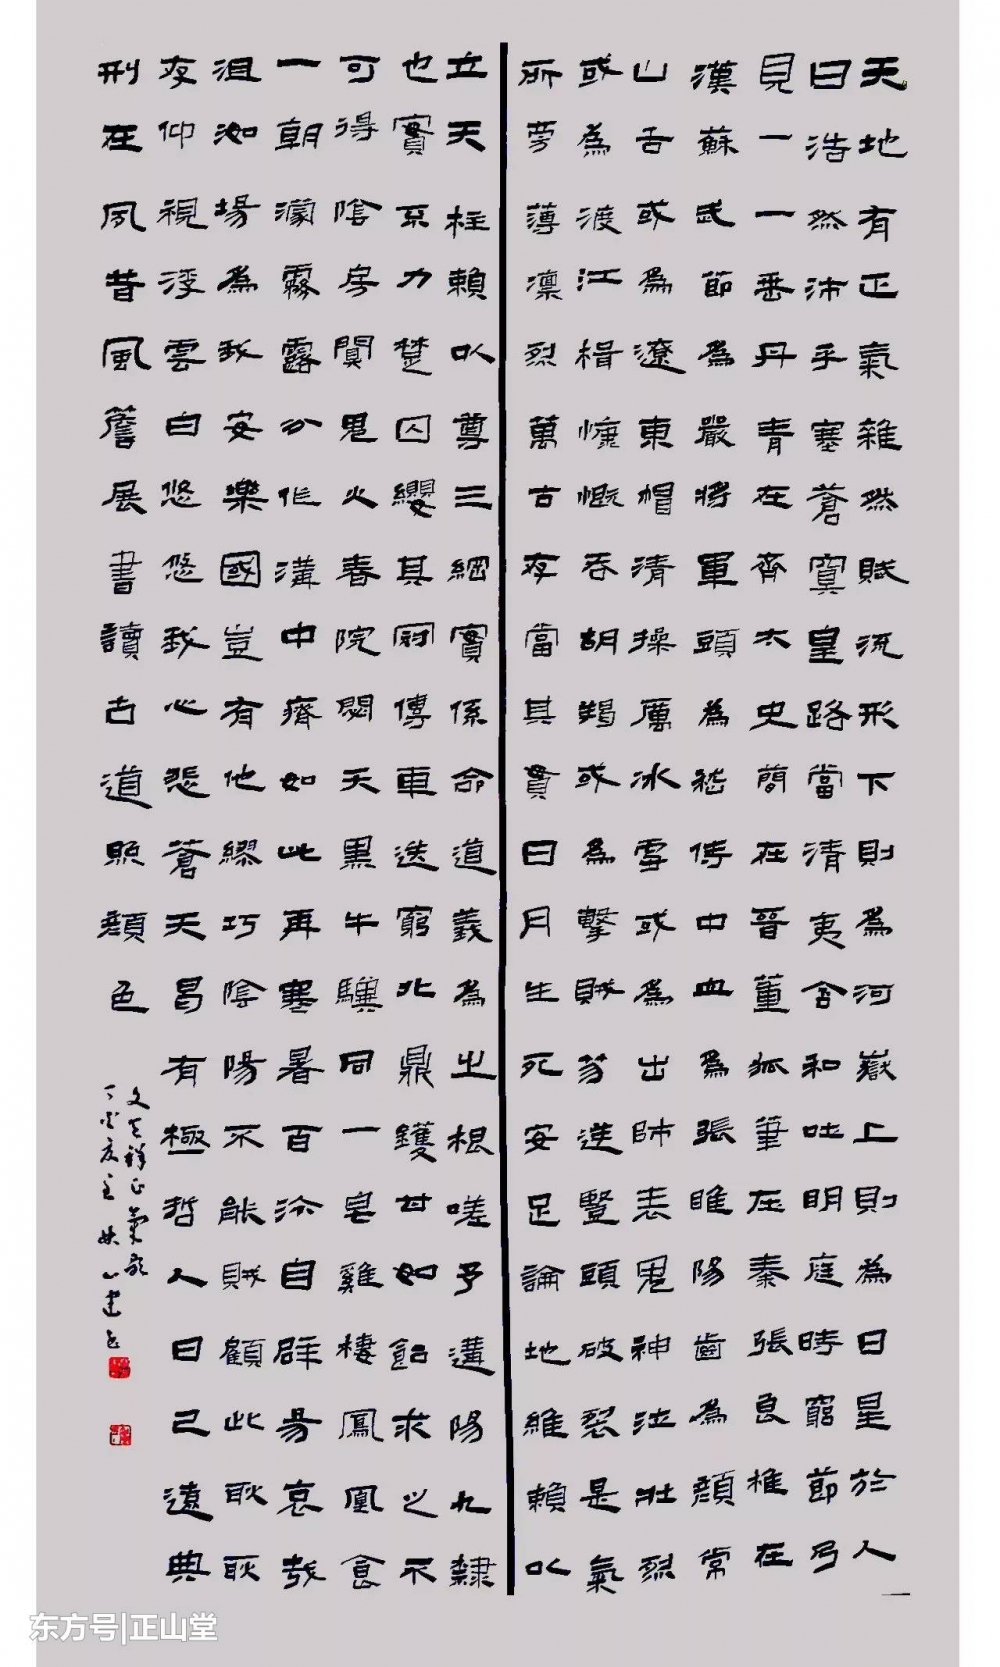 天地有正氣雜然賦流形下則為河嶽上則為日星於人
曰浩然沛乎塞蒼冥皇路當清夷含和吐明庭時窮節乃
見一一垂丹青在齊太史簡在晉董狐筆在秦張良椎在
漢蘇武節為嚴將軍頭為嵇侍中血為張睢陽齒為顏常
山舌或為遼東帽清操厲冰雪或為出師表鬼神泣壯烈
或為渡江楫慷慨吞胡羯或為擊賊笏逆豎頭破裂是氣
所蒡薄凛烈萬古存當其貫日月生死安足論地維賴以
立天柱賴以尊三綱實係命道義為之根嗟予遘陽九隸
也實不力楚囚纓其冠傳車送窮北鼎鑊甘如飴求之不
可得陰房闃鬼火春院閟天黑牛驥同一皂雞棲鳳凰食
一朝濛霧露分作溝中瘠如此再寒暑百沴自辟易哀哉
沮洳場為我安樂國豈有他繆巧陰陽不能賊顧此耿耿
存仰視浮雲白悠悠我心悲蒼天曷有極哲人日已遠典
刑在夙昔風簷展書讀古道照顏色
文天祥正氣歌
丁酉夏至
东方号|正山堂